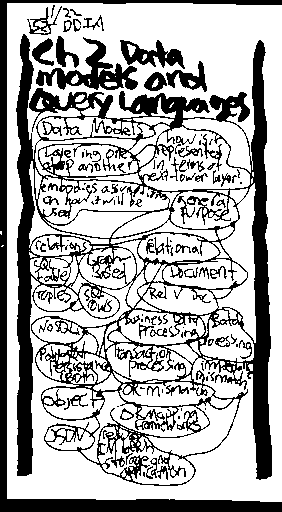 11/22
DDIA
Ch 2 Data
models and
Query Languages
Data Models
Layering one
atop another
how is it
represented
in terms of
next-lower layer?
embodies assumptions
on how it will be
used
general
purpose
relations
SQL
table
Graph
based
relational
Document
tuples
SQL
rows
Rel v Doc
NoSQL
Business Data
Processing
Batch
processing
Polyglot
Persistence
Transaction
processing
impedance
mismatch
Object
OR-mismatch
OR mapping
frameworks
JSON
reduces
IM between
storage and
application